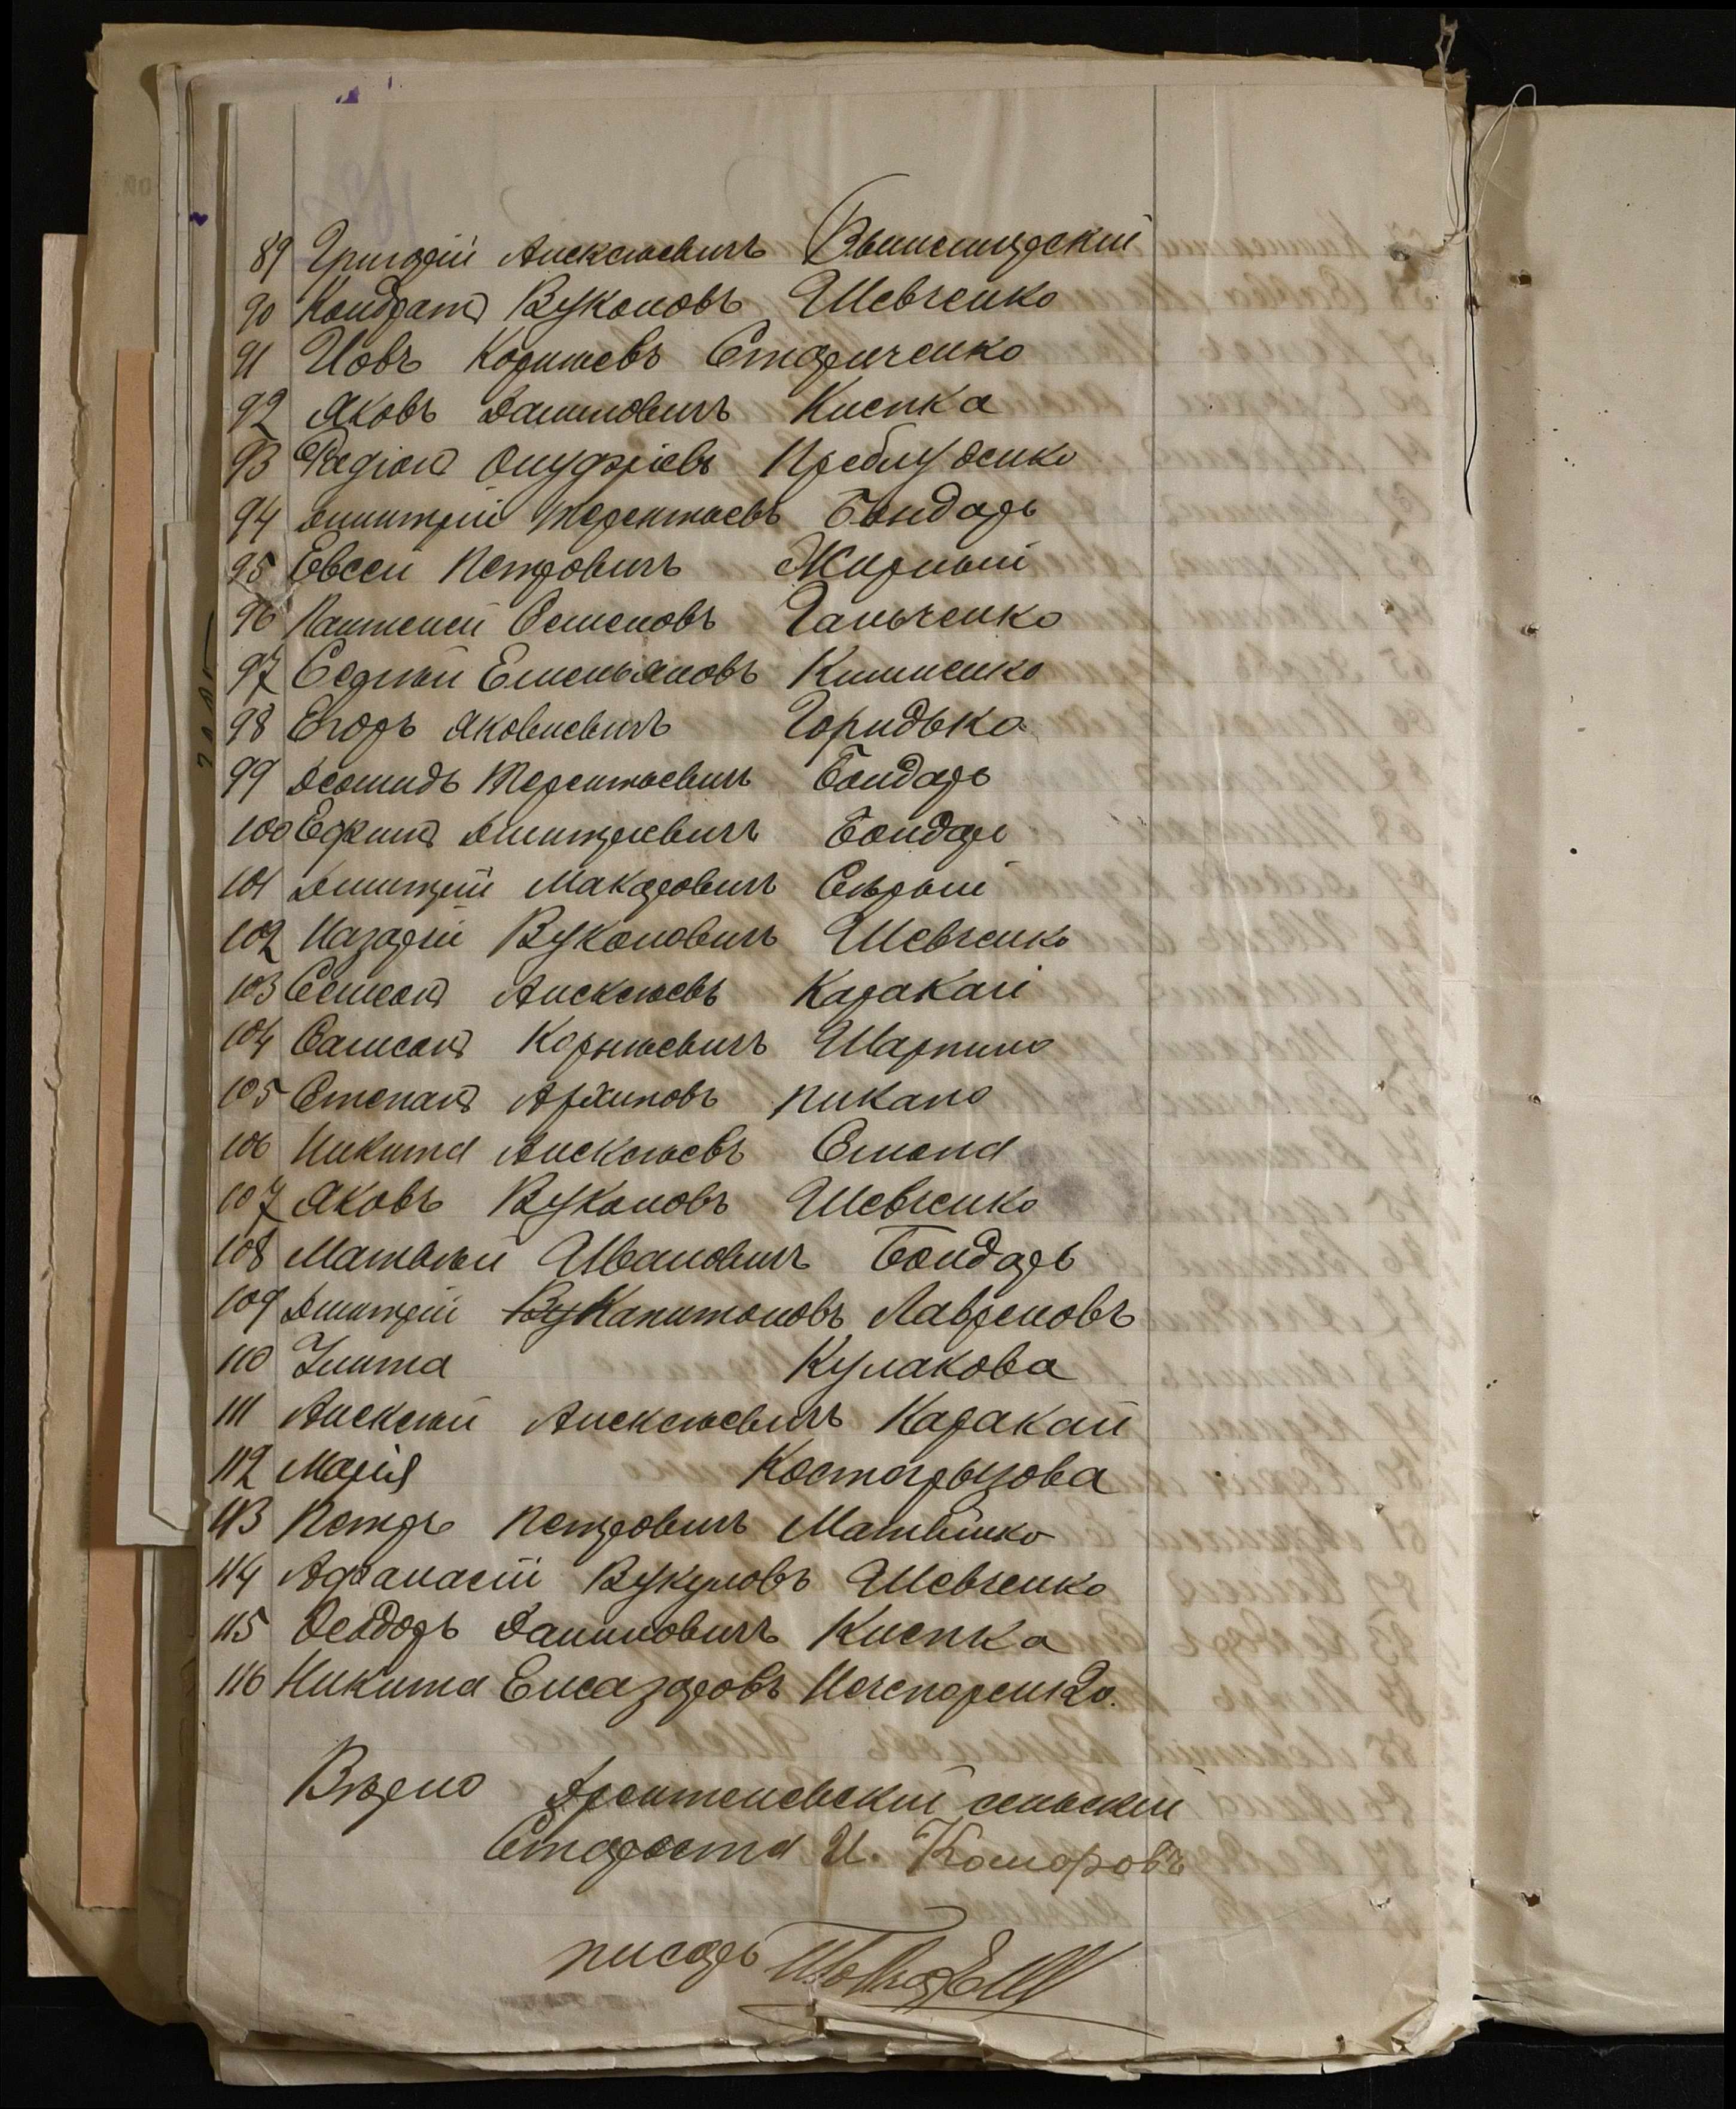 89 Григорій Алексѣевичъ
90 Кондратъ Вуколовъ Шевченко
91 Іовъ Корнѣевъ Старченко
92 Яковъ Даниловичъ Клепка
93 Родіонъ Онуфріевъ Преблуденко
94 Дмитрій Терентьевъ Бондарь
95 Евсей Петровичъ Жирный
96 Пантелей Семеновъ Гальченко
97 Сергѣй Емельяновъ Клименко
98 Егоръ Яковлевичъ Горидька
99 Леонидъ Терентьевичъ Бондарь
100 Ефимъ Дмитріевичъ Бондарь
101 Дмитрій Макаровичъ Сѣрый
102 Назарій Вуколовичъ Шевченко
103 Семенъ Алексѣевъ Каракай
104 Самсонъ Корнѣевичъ Шарпило
105 Степанъ Архиповъ Пикало
106 Никита Алексѣевъ Смола
107 Яковъ Вуколовъ Шевченко
108 Матвѣй Ивановичъ Бондарь
109 Дмитрій Капитоновъ Лавреновъ
110 Улита Кулакова
111 Алексѣй Алексѣевичъ Каракай
112 Марія Костогрызова
113 Петръ Петровичъ Матвійко
114 Афанасій Вукуловъ Шевченко
115 Феодоръ Даниловичъ Клепка
116 Никита Елеазаровъ Нечепоренко.
Вѣрно сельскій
Староста И. Коморовъ
писарь